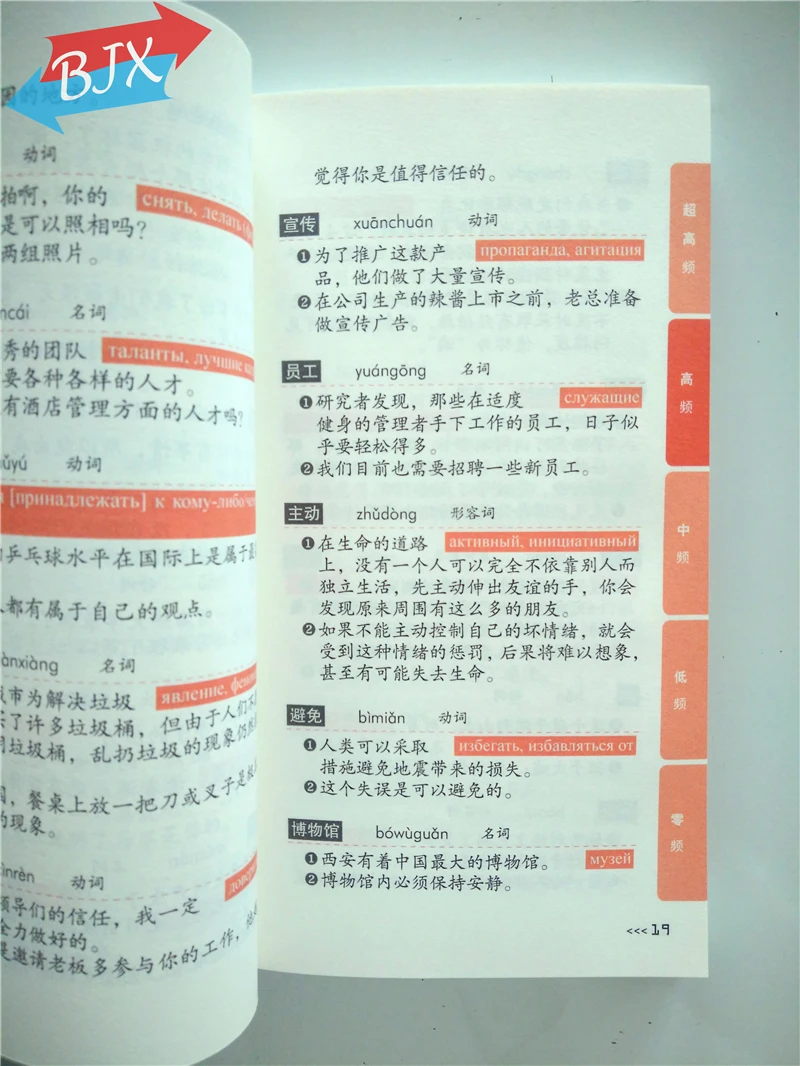 BJX
动词
拍啊，你的
снять, делать
是可以照相吗？
两组照片。
名词
秀的团队
таланты, лучшие
要各种各样的人才。
有酒店管理方面的人才吗？
动词
[принадлежать] к кому-либо
乒乓球水平在国际上是属于
都有属于自己的观点。
名词
市为解决垃圾
явление,
了许多垃圾桶，但由于人们
垃圾桶，乱扔垃圾的现象仍
，餐桌上放一把刀或叉子是
的现象。
动词
领导们的信任，我一定
全力做好的。
是邀请老板多参与你的工作，
觉得你是值得信任的。
宣传 xuānchuán 动词
❶为了推广这款产 пропаганда, агитация
品，他们做了大量宣传。
❷在公司生产的辣酱上市之前，老总准备
做宣传广告。
员工 yuángōng 名词
❶研究者发现，那些在适度 служащие
健身的管理者手下工作的员工，日子似
乎要轻松得多。
❷我们目前也需要招聘一些新员工。
主动 zhǔdòng 形容词
❶在生命的道路 активный, инициативный
上，没有一个人可以完全不依靠别人而
独立生活，先主动伸出友谊的手，你会
发现原来周围有这么多的朋友。
❷如果不能主动控制自己的坏情绪，就会
受到这种情绪的惩罚，后果将难以想象，
甚至有可能失去生命。
避免 bìmiǎn 动词
❶人类可以采取 избегать, избавляться от
措施避免地震带来的损失。
❷这个失误是可以避免的。
博物馆 bówùguǎn 名词
❶西安有着中国最大的博物馆。 музей
❷博物馆内必须保持安静。
超高频
高频
中频
低频
零频
<<< 19